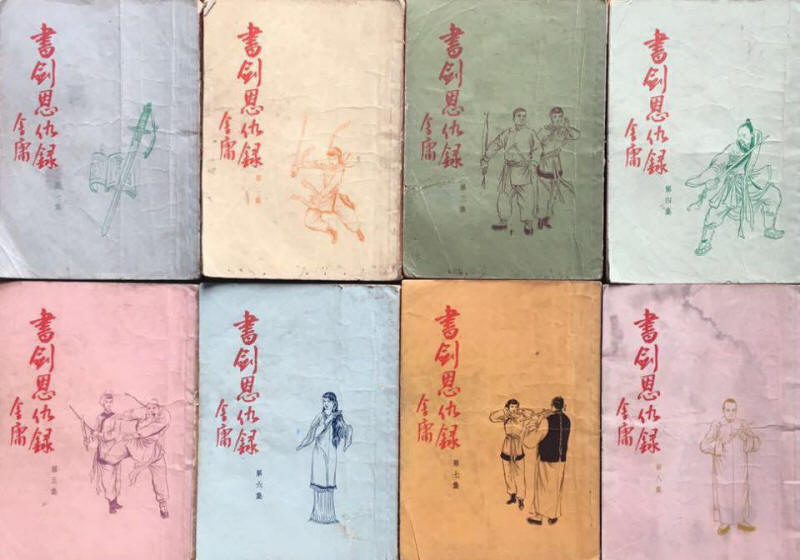 書劍恩仇録
金庸
第一集
書劍恩仇録
金庸
第二集
書劍恩仇録
金庸
第三集
書劍恩仇録
金庸
第四集
書劍恩仇録
金庸
第五集
書劍恩仇録
金庸
第六集
書劍恩仇録
金庸
第七集
書劍恩仇録
金庸
第八集